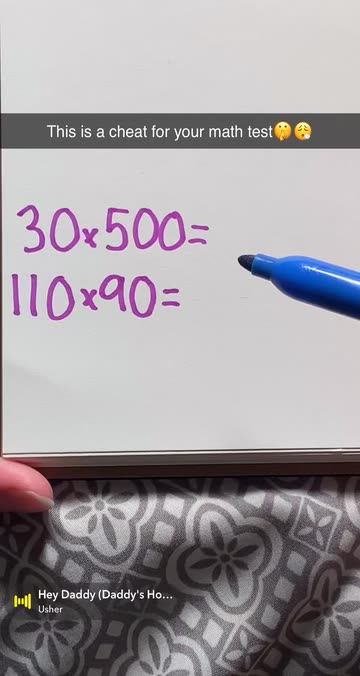 This is a cheat for your math test🤫😮‍💨
30x500=
110x90=
Hey Daddy (Daddy's Ho...
Usher